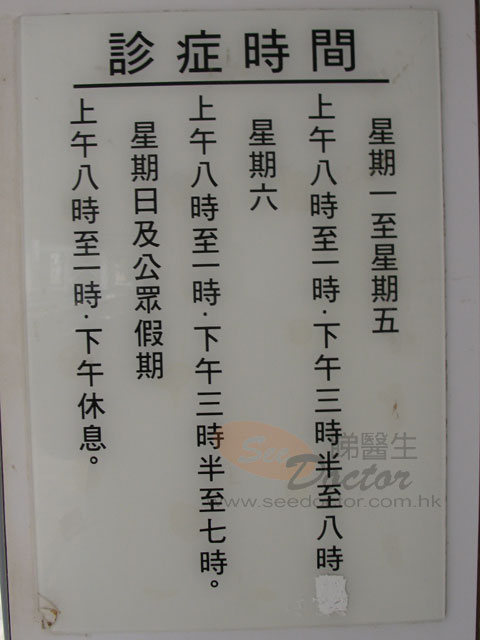 診症時間
星期一至星期五
上午八時至一時·下午三時半至八時
星期六
上午八時至一時·下午三時半至七時。
星期日及公眾假期
上午八時至一時·下午休息。
See Doctor
睇醫生
www.seedoctor.com.hk